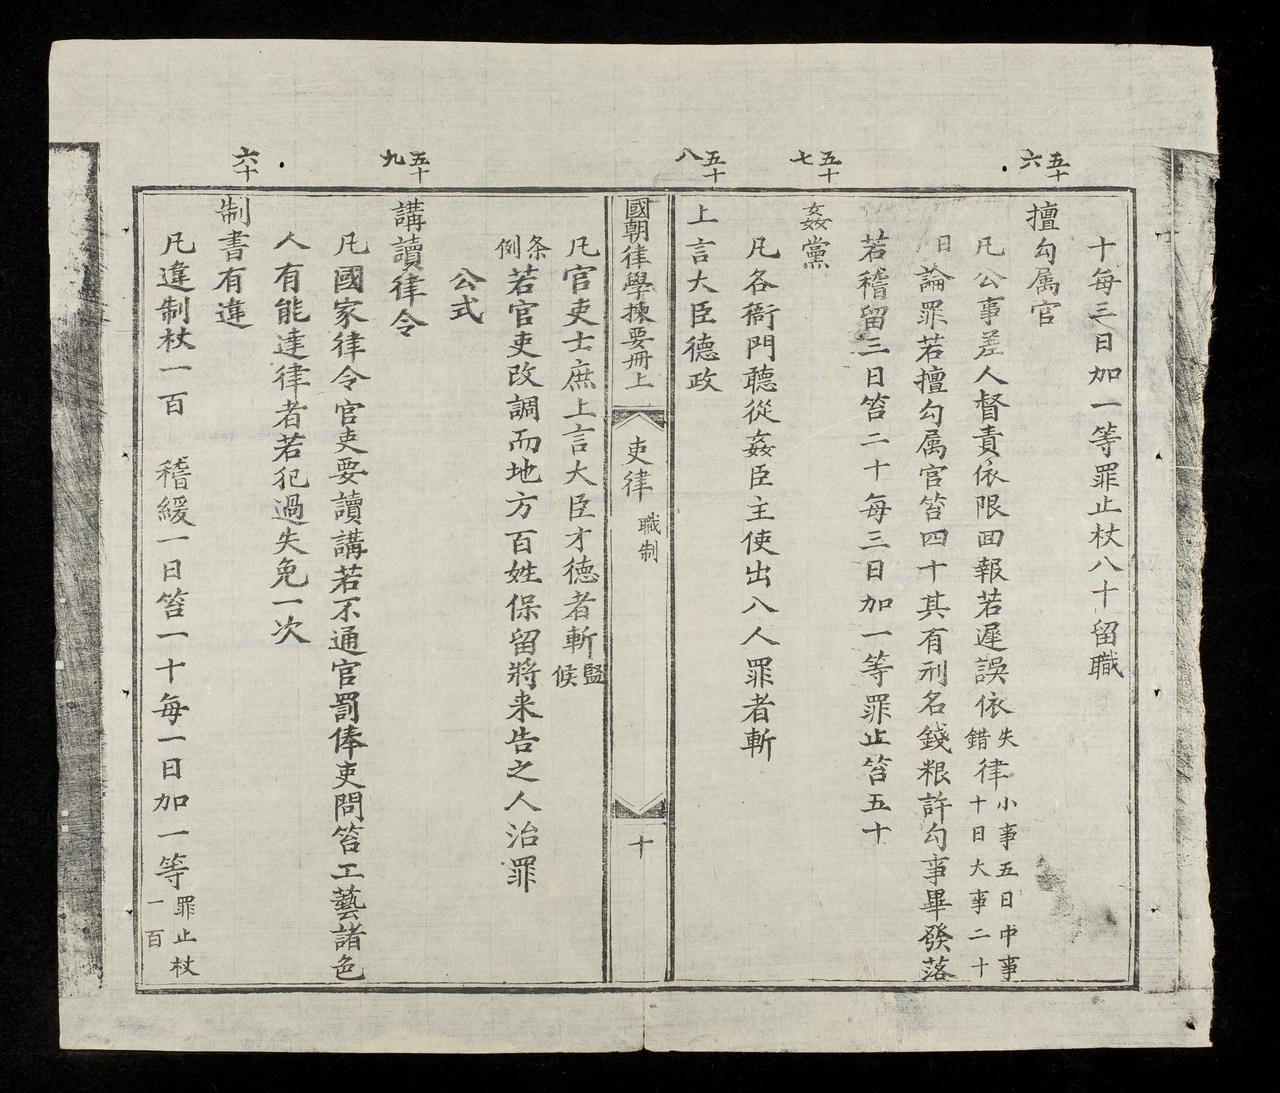 十每三日加一等罪止杖八十留職
五十六
擅勾属官
凡公事差人督責依限回報若遲誤依失錯律小事五日中事十日大事二十
日論罪若擅勾属官笞四十其有刑名錢粮許勾事畢發落
若稽留三日笞二十每三日加一等罪止笞五十
五十七
姦黨
凡各衙門聽從姦臣主使出入人罪者斬
五十八
上言大臣德政
國朝律學揀要冊上 吏律 職制 十
凡官吏士庶上言大臣才德者斬監候
条例若官吏改調而地方百姓保留將来告之人治罪
公式
五十九
講讀律令
凡國家律令官吏要讀講若不通官罰俸吏問笞工藝諸色
人有能達律者若犯過失免一次
六十
制書有違
凡違制杖一百 稽緩一日笞一十每一日加一等罪止杖一百